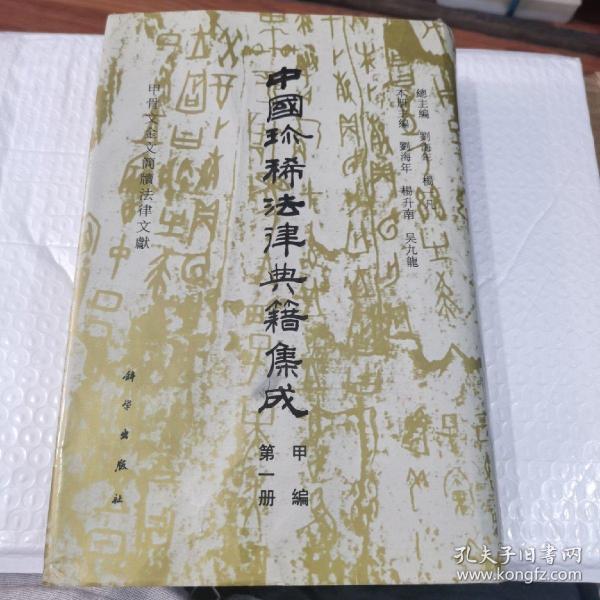 總主編 劉海年 楊一凡
本冊主編 劉海年 楊升南 吴九龍
中國珍稀法律典籍集成
甲編
第一册
甲骨文金文簡牘法律文獻
科学出版社
孔夫子旧书网
www.kongfz.com